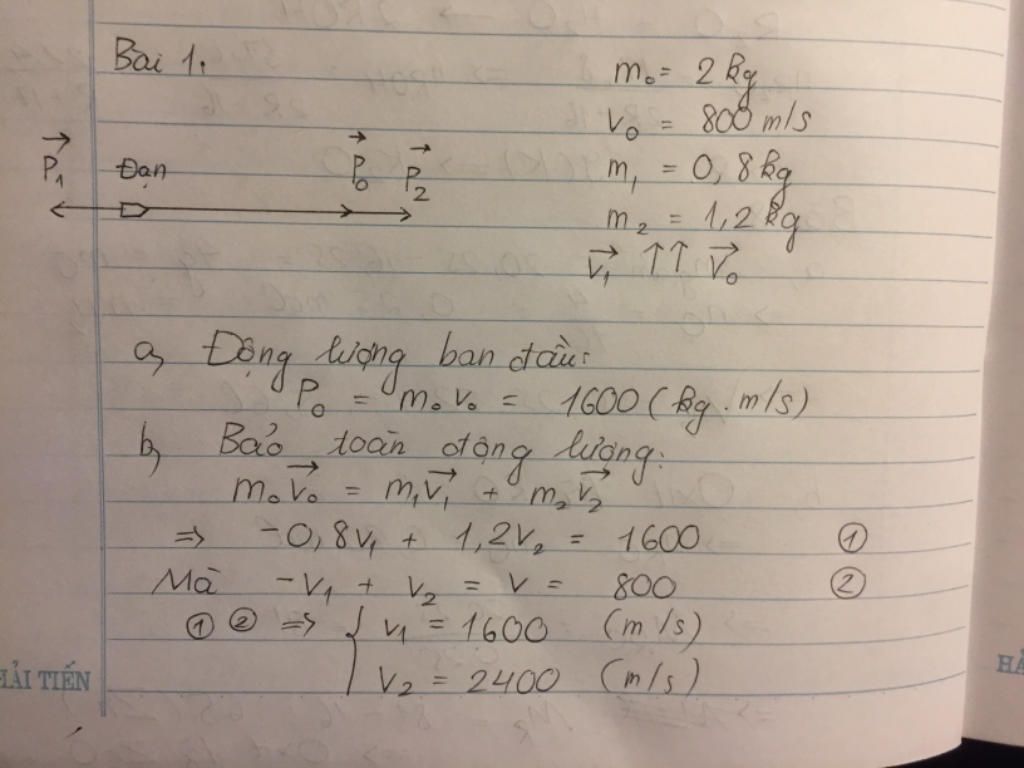 Bài 1.
m₀ = 2 kg
v₀ = 800 m/s
P⃗₁ Đạn P⃗₀ P⃗₂
m₁ = 0,8 kg
m₂ = 1,2 kg
v⃗₁ ↑↑ v⃗₀
a, Động lượng ban đầu:
P₀ = m₀v₀ = 1600 (kg.m/s)
b, Bảo toàn động lượng:
m₀v⃗₀ = m₁v⃗₁ + m₂v⃗₂
=> -0,8v₁ + 1,2v₂ = 1600 ①
Mà -v₁ + v₂ = v = 800 ②
① ② => { v₁ = 1600 (m/s)
v₂ = 2400 (m/s)
HẢI TIẾN